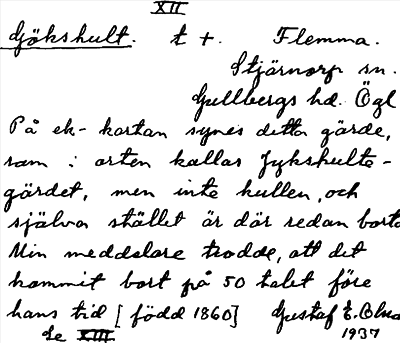 XII
Gjökshult. t +. Flemma.
Stjärnorp sn.
Gullbergs hd. Ögl
På ek-kartan synes detta gärde,
som i orten kallas Jykshulte-
gärdet, men inte kullen, och
själva stället är där redan borta
Min meddelare trodde, att det
kommit bort på 50 talet före
hans tid [född 1860] Gustaf E.
Se XIII. 1937